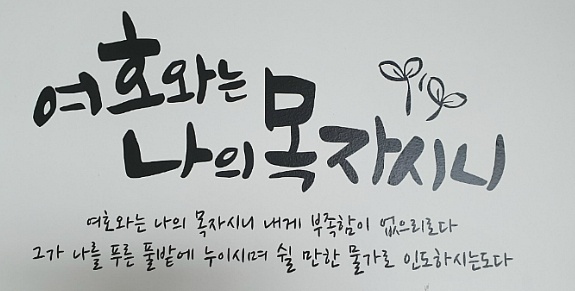 여호와는
나의 목자시니
여호와는 나의 목자시니 내게 부족함이 없으리로다
그가 나를 푸른 풀밭에 누이시며 쉴 만한 물가로 인도하시는도다